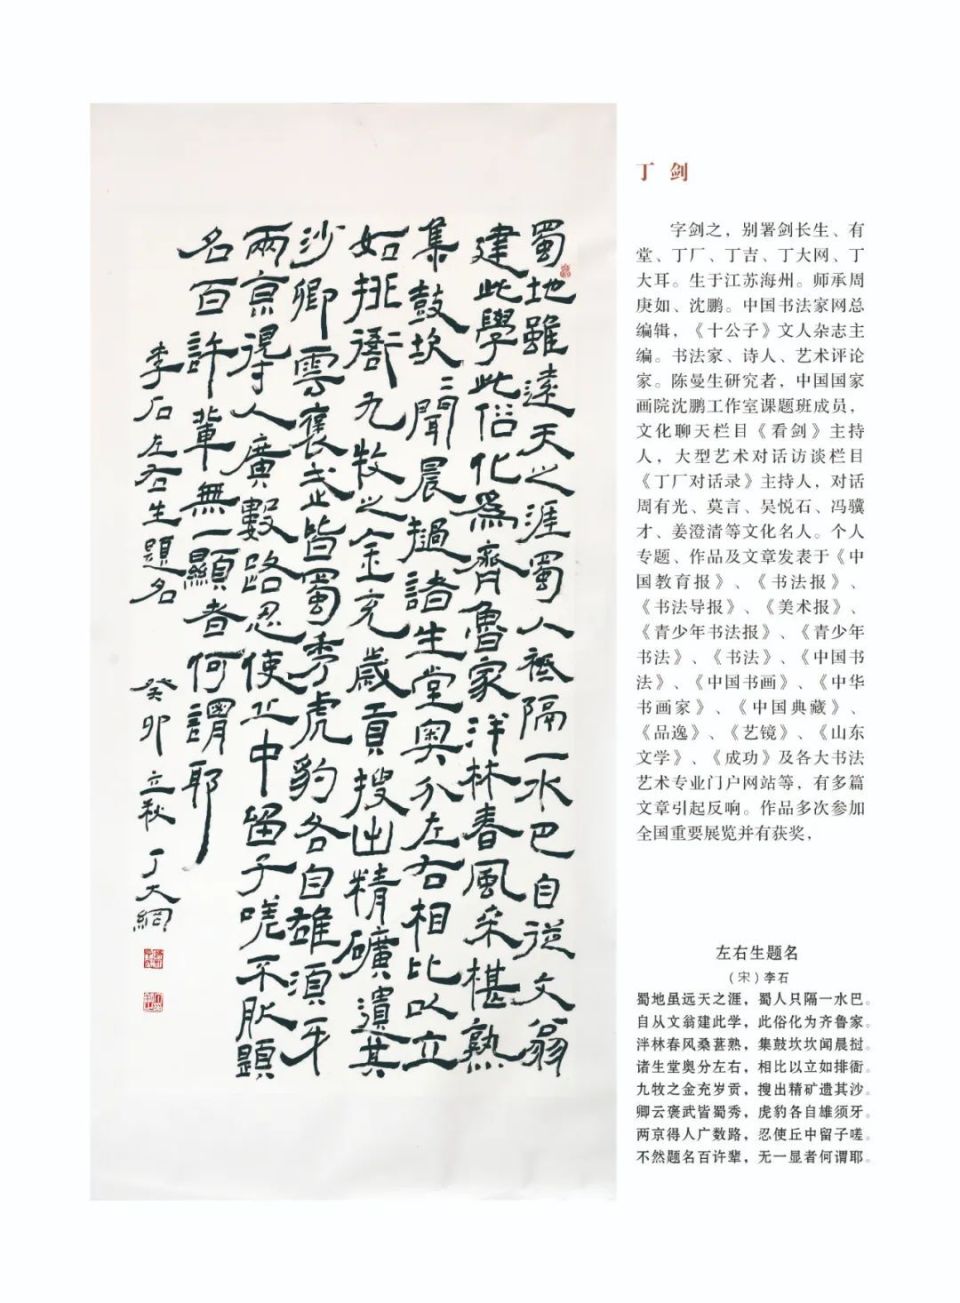 蜀地雖遠天之涯蜀人祗隔一水巴自從文翁
建此學此俗化爲齊魯家泮林春風桒椹熟
集鼓坎〻聞晨撾諸生堂奧分左右相比以立
如排衙九牧之金充歲貢搜出精礦遺其
沙卿雲襃武皆蜀秀虎豹各自雄須牙
兩京得人廣數路忍使丘中留子嗟不肰題
名百許輩無一顯者何謂耶
李石左右生題名 癸卯立秋丁大網
丁 剑
字剑之，别署剑长生、有
堂、丁厂、丁吉、丁大网、丁
大耳。生于江苏海州。师承周
庚如、沈鹏。中国书法家网总
编辑，《十公子》文人杂志主
编。书法家、诗人、艺术评论
家。陈曼生研究者，中国国家
画院沈鹏工作室课题班成员，
文化聊天栏目《看剑》主持
人，大型艺术对话访谈栏目
《丁厂对话录》主持人，对话
周有光、莫言、吴悦石、冯骥
才、姜澄清等文化名人。个人
专题、作品及文章发表于《中
国教育报》、《书法报》、
《书法导报》、《美术报》、
《青少年书法报》、《青少年
书法》、《书法》、《中国书
法》、《中国书画》、《中华
书画家》、《中国典藏》、
《品逸》、《艺镜》、《山东
文学》、《成功》及各大书法
艺术专业门户网站等，有多篇
文章引起反响。作品多次参加
全国重要展览并有获奖，
左右生题名
（宋）李石
蜀地虽远天之涯，蜀人只隔一水巴。
自从文翁建此学，此俗化为齐鲁家。
泮林春风桑葚熟，集鼓坎坎闻晨挝。
诸生堂奥分左右，相比以立如排衙。
九牧之金充岁贡，搜出精矿遗其沙。
卿云褒武皆蜀秀，虎豹各自雄须牙。
两京得人广数路，忍使丘中留子嗟。
不然题名百许辈，无一显者何谓耶。